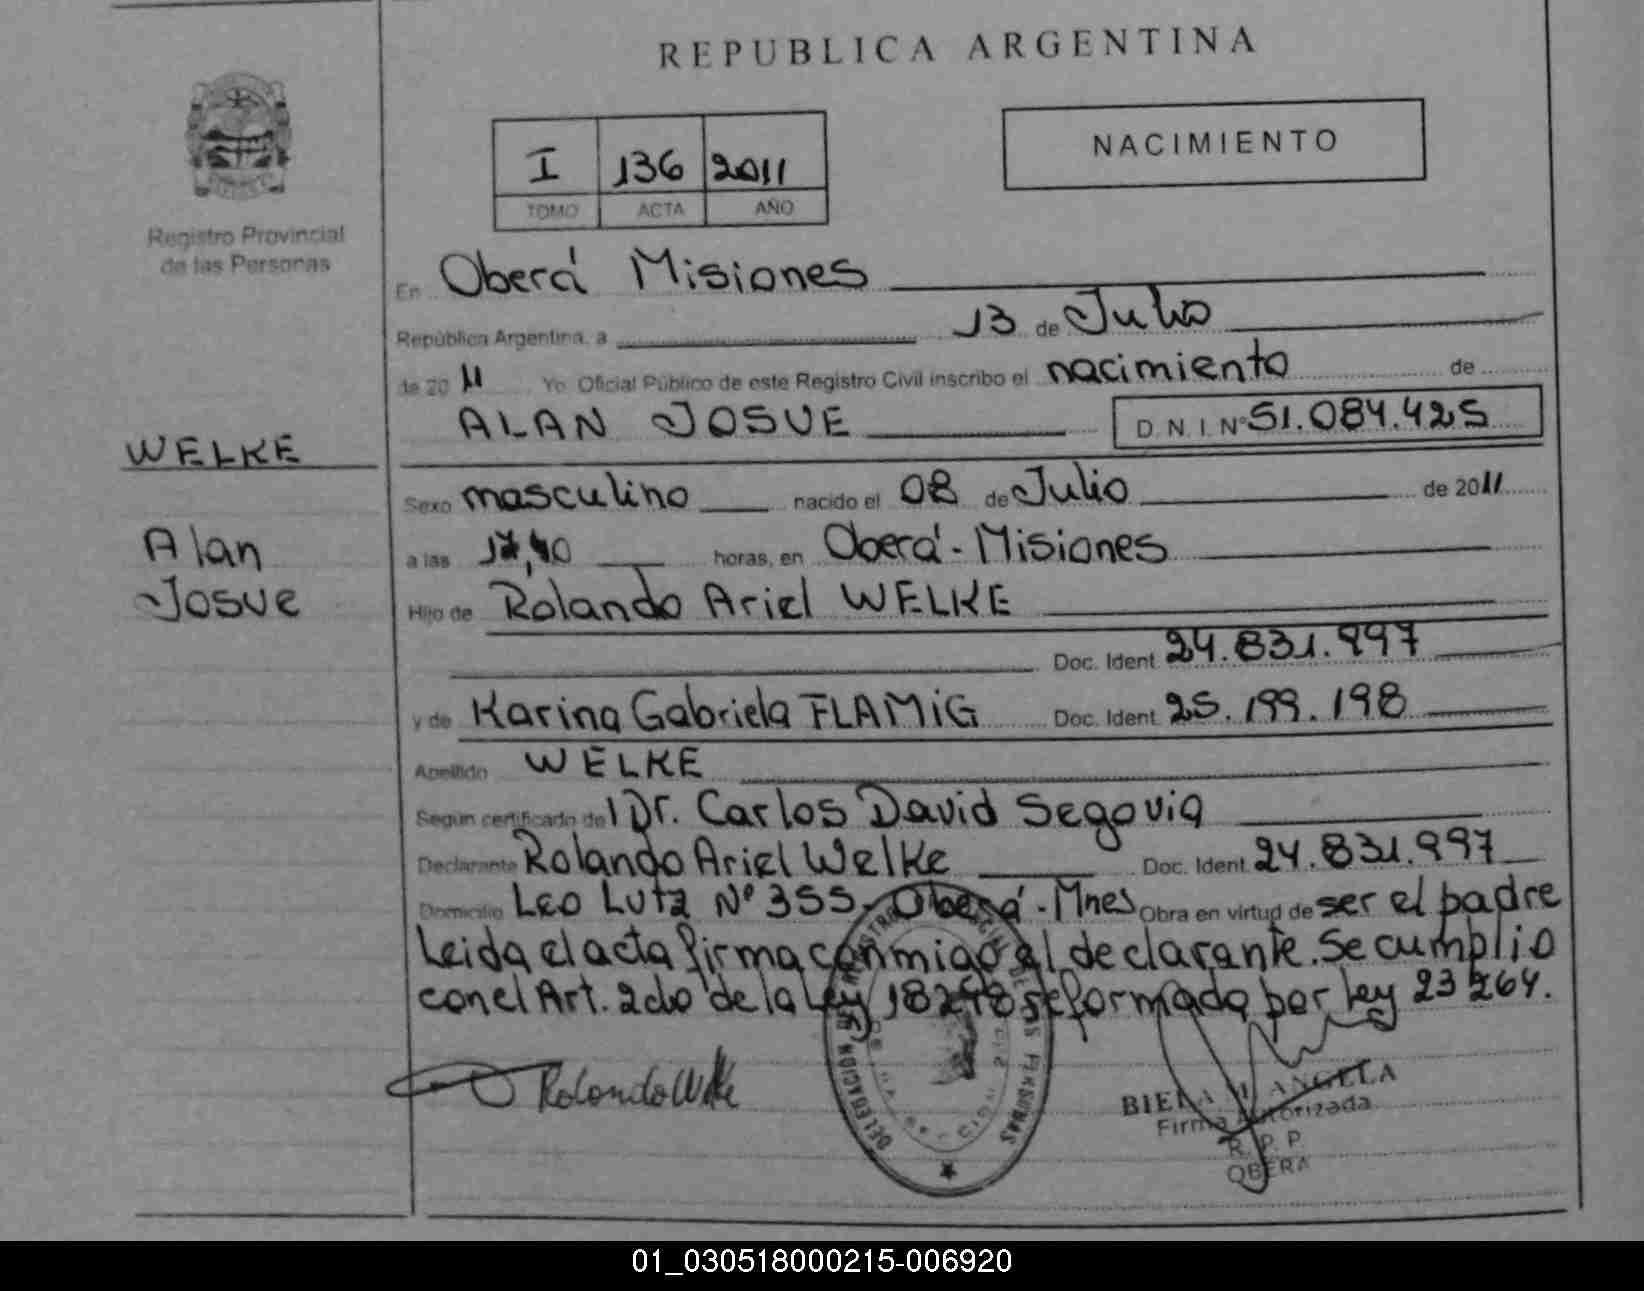 REPUBLICA ARGENTINA
NACIMIENTO
I 136 2011
TOMO ACTA AÑO
Registro Provincial
de las Personas
En Oberá Misiones
República Argentina, a 13 de Julio
de 2011 Yo Oficial Público de este Registro Civil inscribo el nacimiento de
ALAN JOSUE D.N.I. Nº 51.084.425
WELKE
Alan
Josue
Sexo masculino nacido el 08 de Julio de 2011
a las 17,40 horas, en Oberá - Misiones
Hijo de Rolando Ariel WELKE
Doc. Ident. 24.831.997
y de Karina Gabriela FLAMiG Doc. Ident. 25.199.198
Apellido WELKE
Según certificado del Dr. Carlos David Segovia
Declarante Rolando Ariel Welke Doc. Ident. 24.831.997
Domicilio Leo Lutz Nº 355 - Oberá - Mnes Obra en virtud de ser el padre
Leida el acta firma conmigo el declarante. Se cumplio
con el Art. 2do de la Ley 18248 reformado por ley 23264.
Rolando Welke
DELEGACION
BIELA ANGELA
Firma Autorizada
R. P. P.
OBERA
01_030518000215-006920